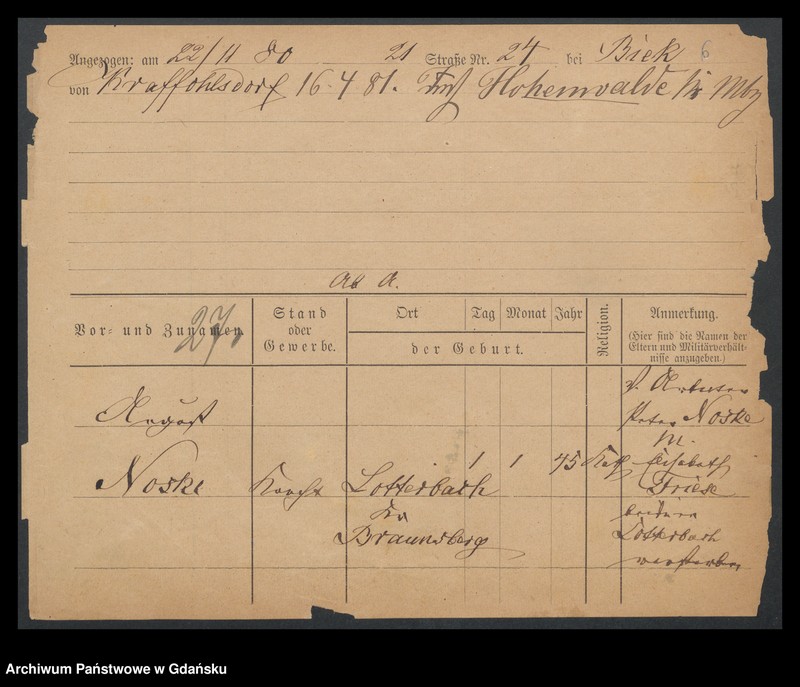 Angezogen: am 22/11 80 21 Straße Nr. 24 bei Biek 6
von Kraffohlsdorf 16.4 81. Hohenwalde
Ab A.
27.
Vor- und Zunamen.
Stand
oder
Gewerbe.
Ort Tag Monat Jahr
der Geburt.
Religion.
Anmerkung.
(Hier sind die Namen der
Eltern und Militärverhält-
nisse anzugeben.)
August
Noske Knecht Lotterbach 1 1 45 Kath
Kr
Braunsberg
V. Arbeiter
Peter Noske
M.
Elisabeth
Friese
beide in
Lotterbach
verstorben
Archiwum Państwowe w Gdańsku